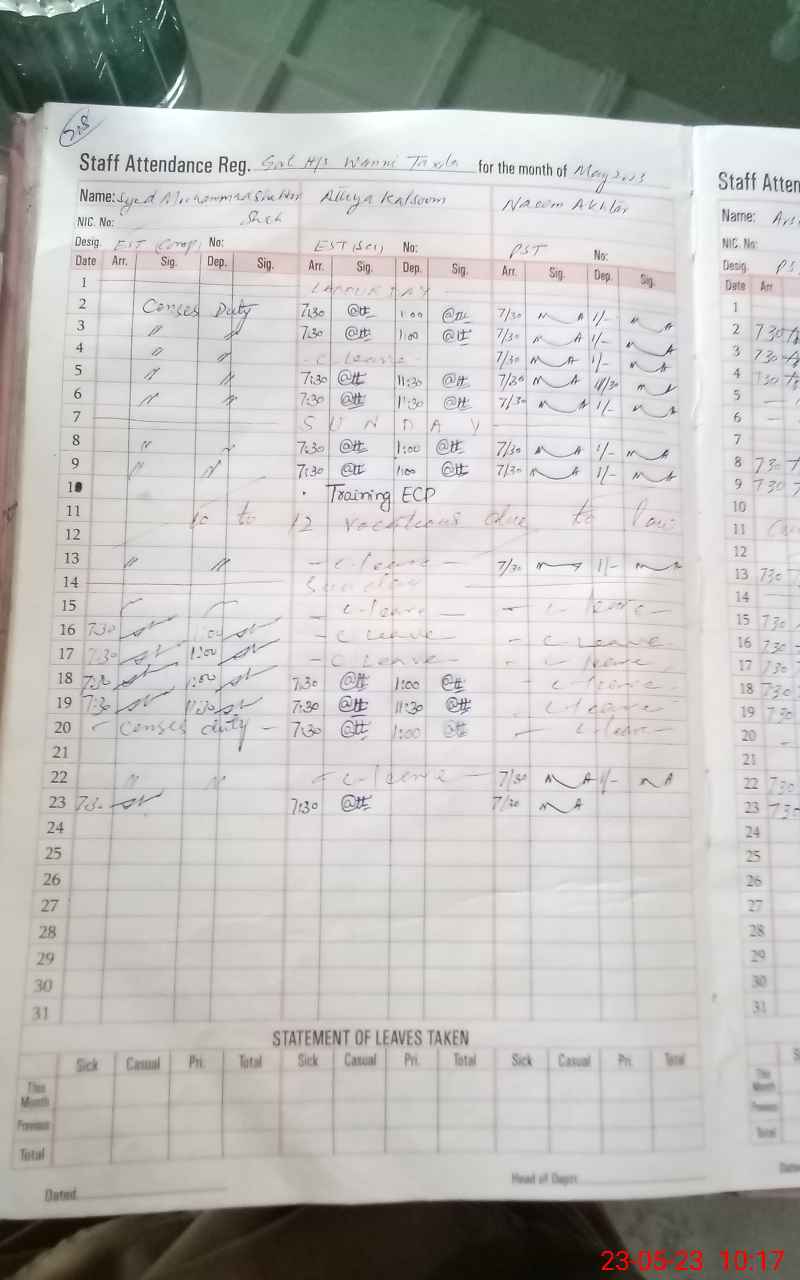 508
Staff Attendance Reg. H/S Wanni Taxila for the month of May 2023
Name: Syed Muhammad Attiya Kalsoom Naeem Akhtar
NIC. No: Shah
Desig. EST (Comp) No: EST (Sci) No: PST No:
Date Arr. Sig. Dep. Sig. Arr. Sig. Dep. Sig. Arr. Sig. Dep. Sig.
1 LABOUR DAY
2 Censes Duty 7:30 1:00 7/30 1/-
3 〃 〃 7:30 1:00 7/30 1/-
4 〃 〃 - C leave - 7/30 1/-
5 〃 〃 7:30 11:30 7/30 11/30
6 〃 〃 7:30 11:30 7/30 1/-
7 S U N D A Y
8 〃 〃 7:30 1:00 7/30 1/-
9 〃 〃 7:30 1:00 7/30 1/-
10 . Training ECP
11 10 to 12 vacations due to
12
13 〃 〃 - C-leave - 7/30 1/-
14 Sunday
15 - C leave - - C leave -
16 7:30 1:00 - C leave - C leave
17 7:30 1:00 - C leave - - C leave
18 7:30 1:00 7:30 1:00 C-leave
19 7:30 11:30 7:30 11:30 C-leave
20 - Censes duty - 7:30 1:00 - C-leave -
21
22 〃 〃 - C-leave - 7/30 1/-
23 7:30 7:30 7/30
24
25
26
27
28
29
30
31
STATEMENT OF LEAVES TAKEN
Sick Casual Pri. Total Sick Casual Pri. Total Sick Casual Pri. Total
This Month
Previous
Total
Dated Head of Deptt
Staff Atten
Name:
NIC. No:
Desig. PS
Date Arr
1
2 730
3 730
4 730
5
6
7
8 730
9 730
10
11
12
13 730
14
15 730
16 730
17 730
18 730
19 730
20
21
22 730
23 730
24
25
26
27
28
29
30
31
This Month
Previous
Total
23-05-23 10:17